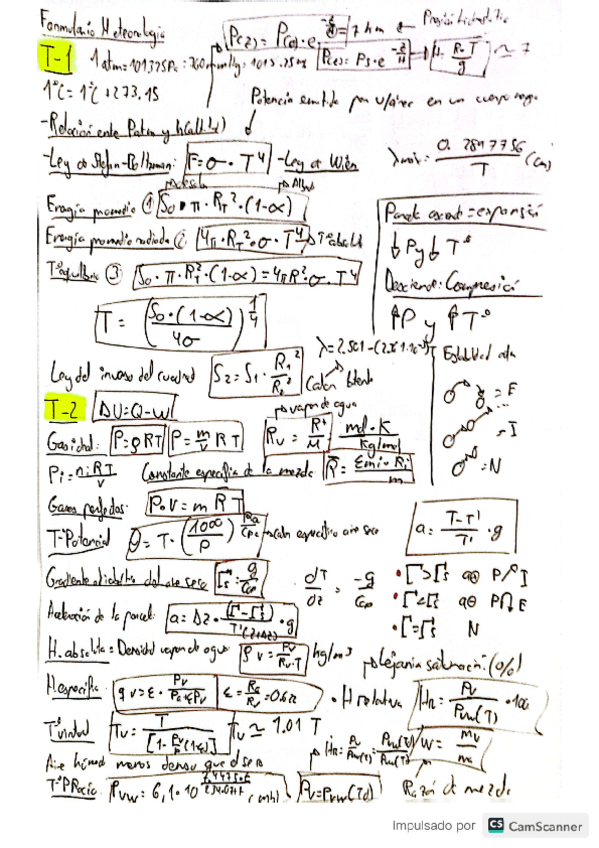 Formulario Meteorología
P(z) = P(0)·e^(-z/H) = 7 km ← Presión hidrostática
T-1 1 atm = 101325 Pa = 760 mmHg = 1013.25 H P(z) = P_s·e^(-z/H) → H = R·T/g ≃ 7
1°C = 1°C + 273.15
Potencia emitida por u/área en un cuerpo negro
-Relación entre Patm y h(altitud)
-Ley de Stefan-Boltzman: F = σ·T⁴ -Ley de Wien λmáx = 0.2897756/T (cm)
Energía promedio ① S₀·π·R_T²·(1-α)
Energía promedio radiada ② 4π·R_T²·σ·T⁴ → T° absolut
T° equilibrio ③ S₀·π·R_T²·(1-α) = 4πR²·σ·T⁴
T = (S₀·(1-α)/4σ)^(1/4)
Parcela asciende = expansión
↓P y ↓T°
Desciende: Compresión
↑P y ↑T°
Ley del inverso del cuadrado S₂ = S₁·R₁²/R₂² Calor latente
Estabilidad
= E
= I
= N
T-2 ΔU = Q - W
→ vapor de agua
Gas ideal: P = ρRT P = m/V R T R_v = R*/M mol·K Kg/mol
Pi = niRT/V Constante específica de la mezcla R̄ = Σmi·Ri/m
Gases perfectos: P·V = m R̄ T
T° Potencial θ = T·(1000/P)^(Ra/Cpa) → calor específico aire seco a = (T-T')/T'·g
Gradiente adiabático del aire seco Γs = g/Cp dT/dz = -g/Cp
• Γ>Γs a⊕ P↗ I
• Γ<Γs a⊖ P E
• Γ=Γs N
Aceleración de la parcela: a = Δz·(Γ-Γs)/T'(z+Δz)·g
H. absoluta = Densidad vapor de agua ρv = Pv/Rv·T kg/m³
→ Lejanía saturación (%)
H. específica qv = ε·Pv ε = Ra/Rv = 0.622 • H relativa Hr = Pv/Pvw(T)·100
T° virtual Tv = T/[1-Pv/P(1-ε)] Tv ≃ 1.01 T
W = mv/ma
Aire húmed menos denso que el seco
Razón de mezcla
T° P Rocío: Pv = Pvw(Td)
Impulsado por CS CamScanner